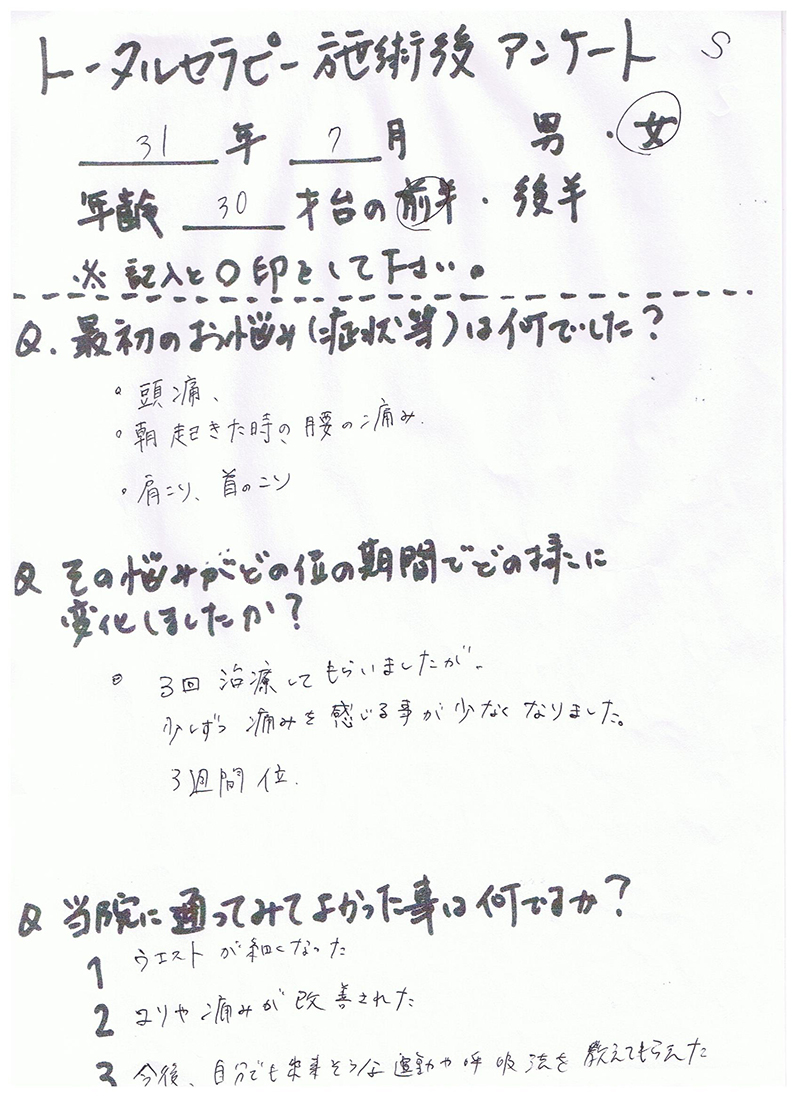 トータルセラピー施術後 アンケート S
31 年 7 月 男 ・ 女
年齢 30 才台の 前半 ・ 後半
※ 記入と〇印をして下さい。
Q. 最初のお悩み(症状等)は何でした?
・頭痛、
・朝起きた時の腰の痛み.
・肩こり、首のこり
Q その悩みがどの位の期間でどの様に
変化しましたか?
3回 治療してもらいましたが、
少しずつ 痛みを感じる事が少なくなりました。
3週間位.
Q 当院に通ってみてよかった事は何ですか?
1 ウエストが細くなった
2 コリや痛みが改善された
3 今後、自分でも出来そうな運動や呼吸法を教えてもらえた